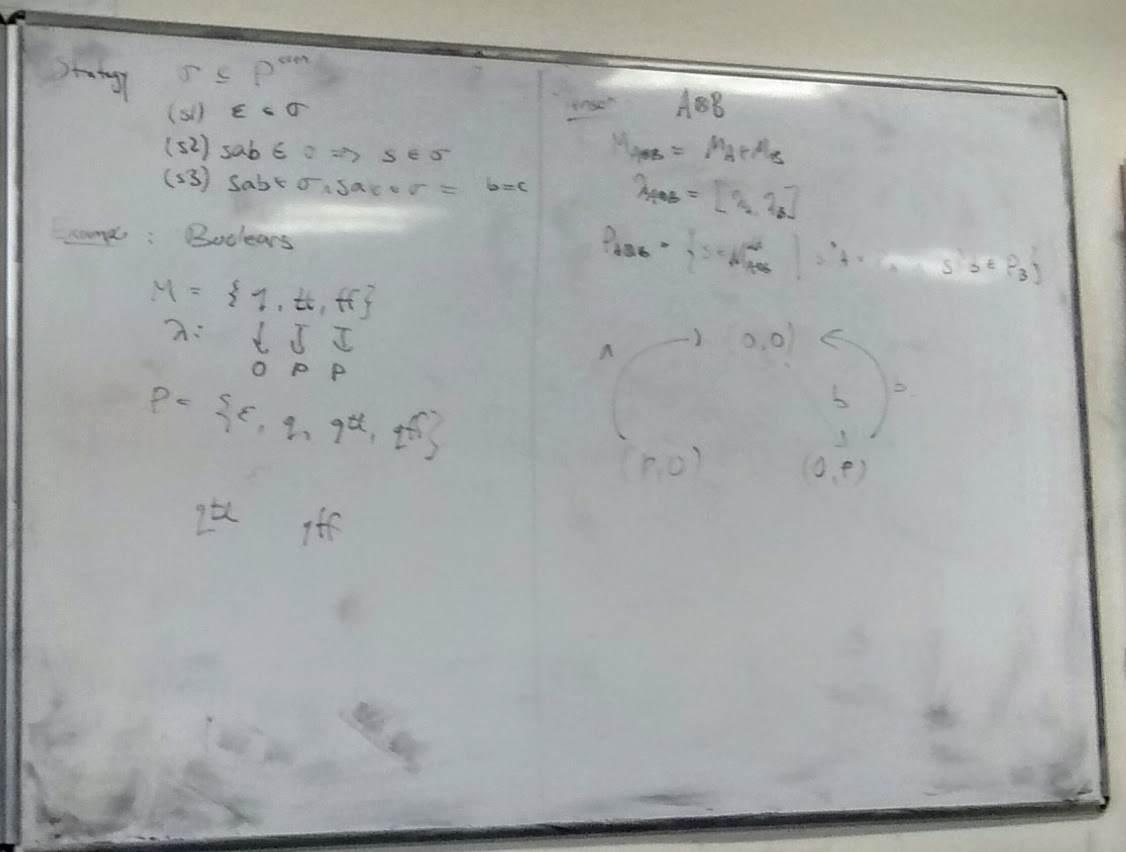 Strategy σ ⊆ P^even
(s1) ε ∈ σ
(s2) sab ∈ σ ⇒ s ∈ σ
(s3) sab ∈ σ, sac ∈ σ = b=c
Example : Booleans
M = {q, tt, ff}
λ: ↓ ↓ ↓
O P P
P = {ε, q, qtt, qff}
qtt qff
A⊗B
M_A⊗B = M_A + M_B
λ_A⊗B = [λ_A, λ_B]
P_A⊗B = {s ∈ M^alt_A⊗B | s↾A s↾B ∈ P_B}
O,O)
A
b
B
(P,O) (O,P)